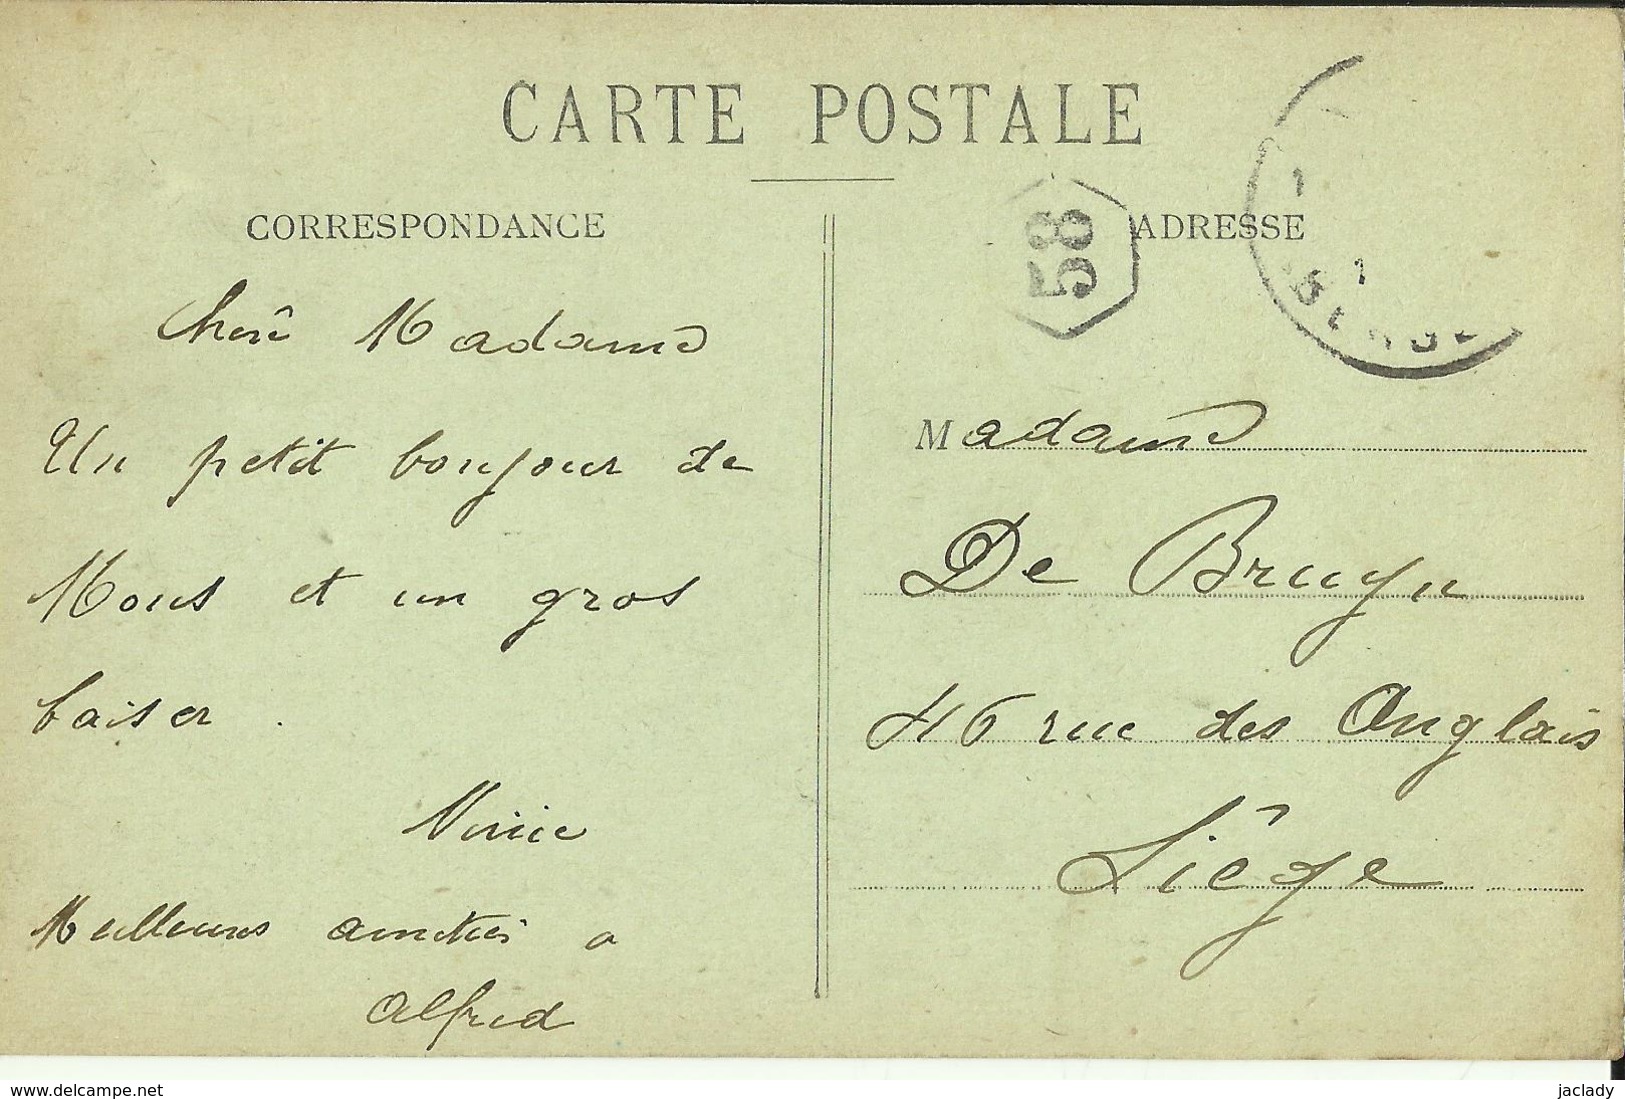 CARTE POSTALE
CORRESPONDANCE
Cherê Madame
Un petit bonjour de
Mons et un gros
baiser.
Meilleures amitiés a
Alfred
58
ADRESSE
Madame
De Bruyn
46 rue des Anglais
Liège
www.delcampe.net
jaclady